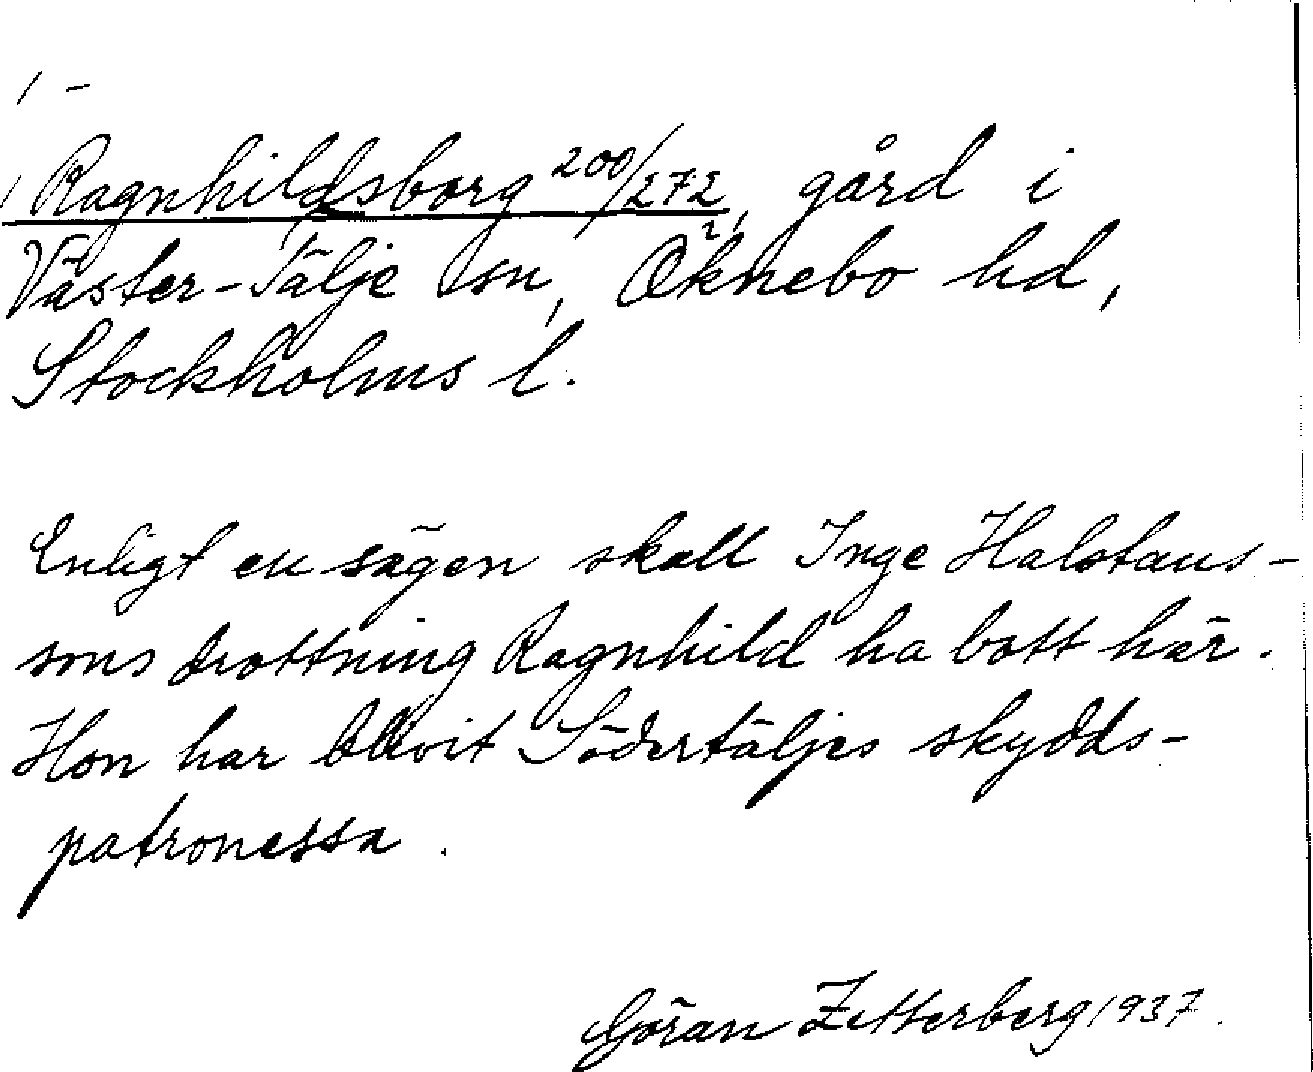 Ragnhildsborg 200/272, gård i
Väster-Tälje sn, Öknebo hd,
Stockholms l.
Enligt en sägen skall Inge Halstans-
sons drottning Ragnhild ha bott här.
Hon har blivit Södertäljes skydds-
patronessa.
Göran Zetterberg 1937.